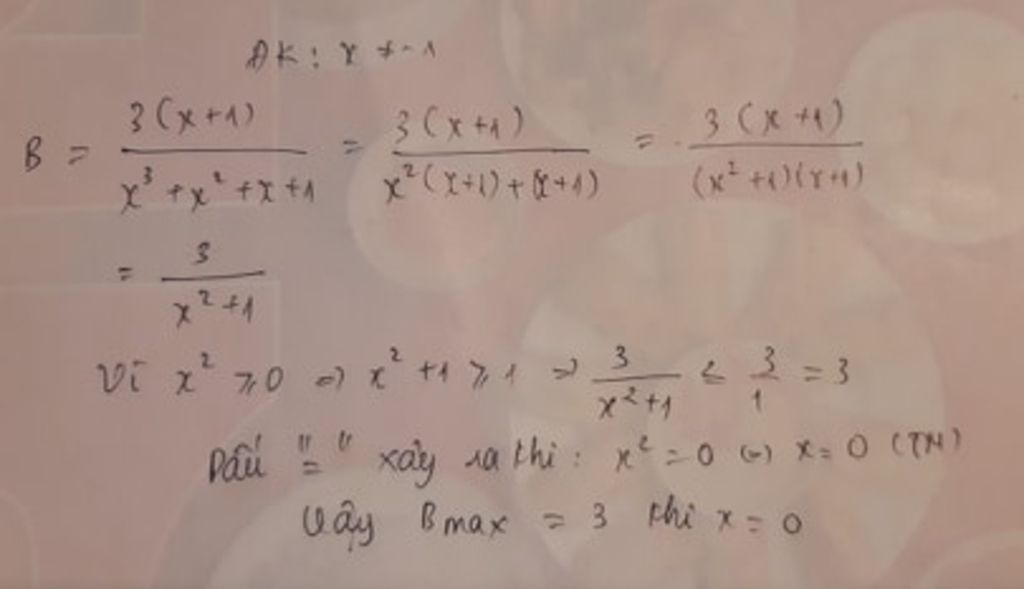 ĐK: x ≠ -1
B = 3(x+1)/(x³+x²+x+1) = 3(x+1)/(x²(x+1)+(x+1)) = 3(x+1)/((x²+1)(x+1))
= 3/(x²+1)
Vì x² ≥ 0 => x² +1 ≥ 1 => 3/(x²+1) ≤ 3/1 = 3
Dấu "=" xảy ra khi: x² = 0 (=) x = 0 (TM)
Vậy Bmax = 3 khi x = 0